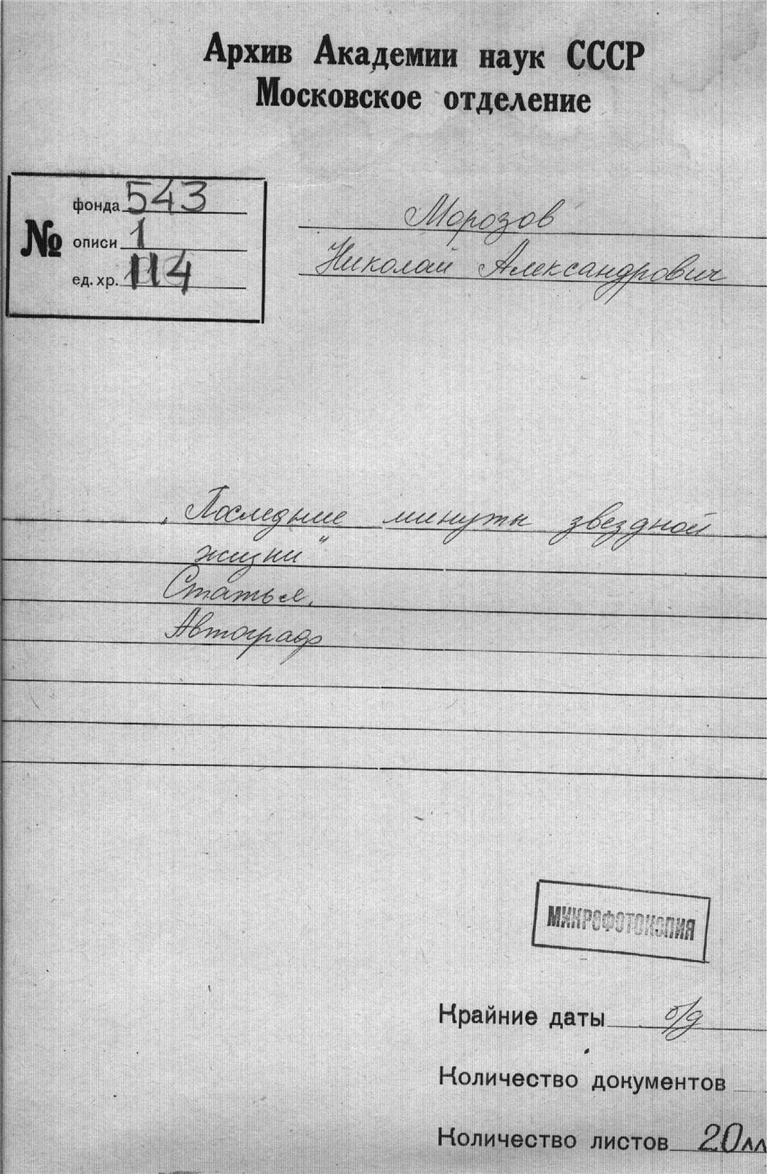 Архив Академии наук СССР
Московское отделение
№
фонда 543
описи 1
ед. хр. 114
Морозов
Николай Александрович
„Последние минуты звездной
жизни"
Статья.
Автограф
МИКРОФОТОКОПИЯ
Крайние даты б/д
Количество документов
Количество листов 20 лл